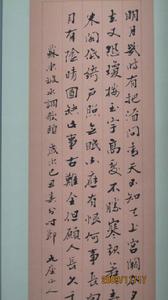 明月幾時有把酒問青天不知天上宮闕今夕
去又恐瓊樓玉宇高處不勝寒起舞弄
朱閣低綺戶照無眠不應有恨何事長
月有陰晴圓缺此事古難全但願人長久
蘇東坡水調歌頭 歲次己丑春分 山人